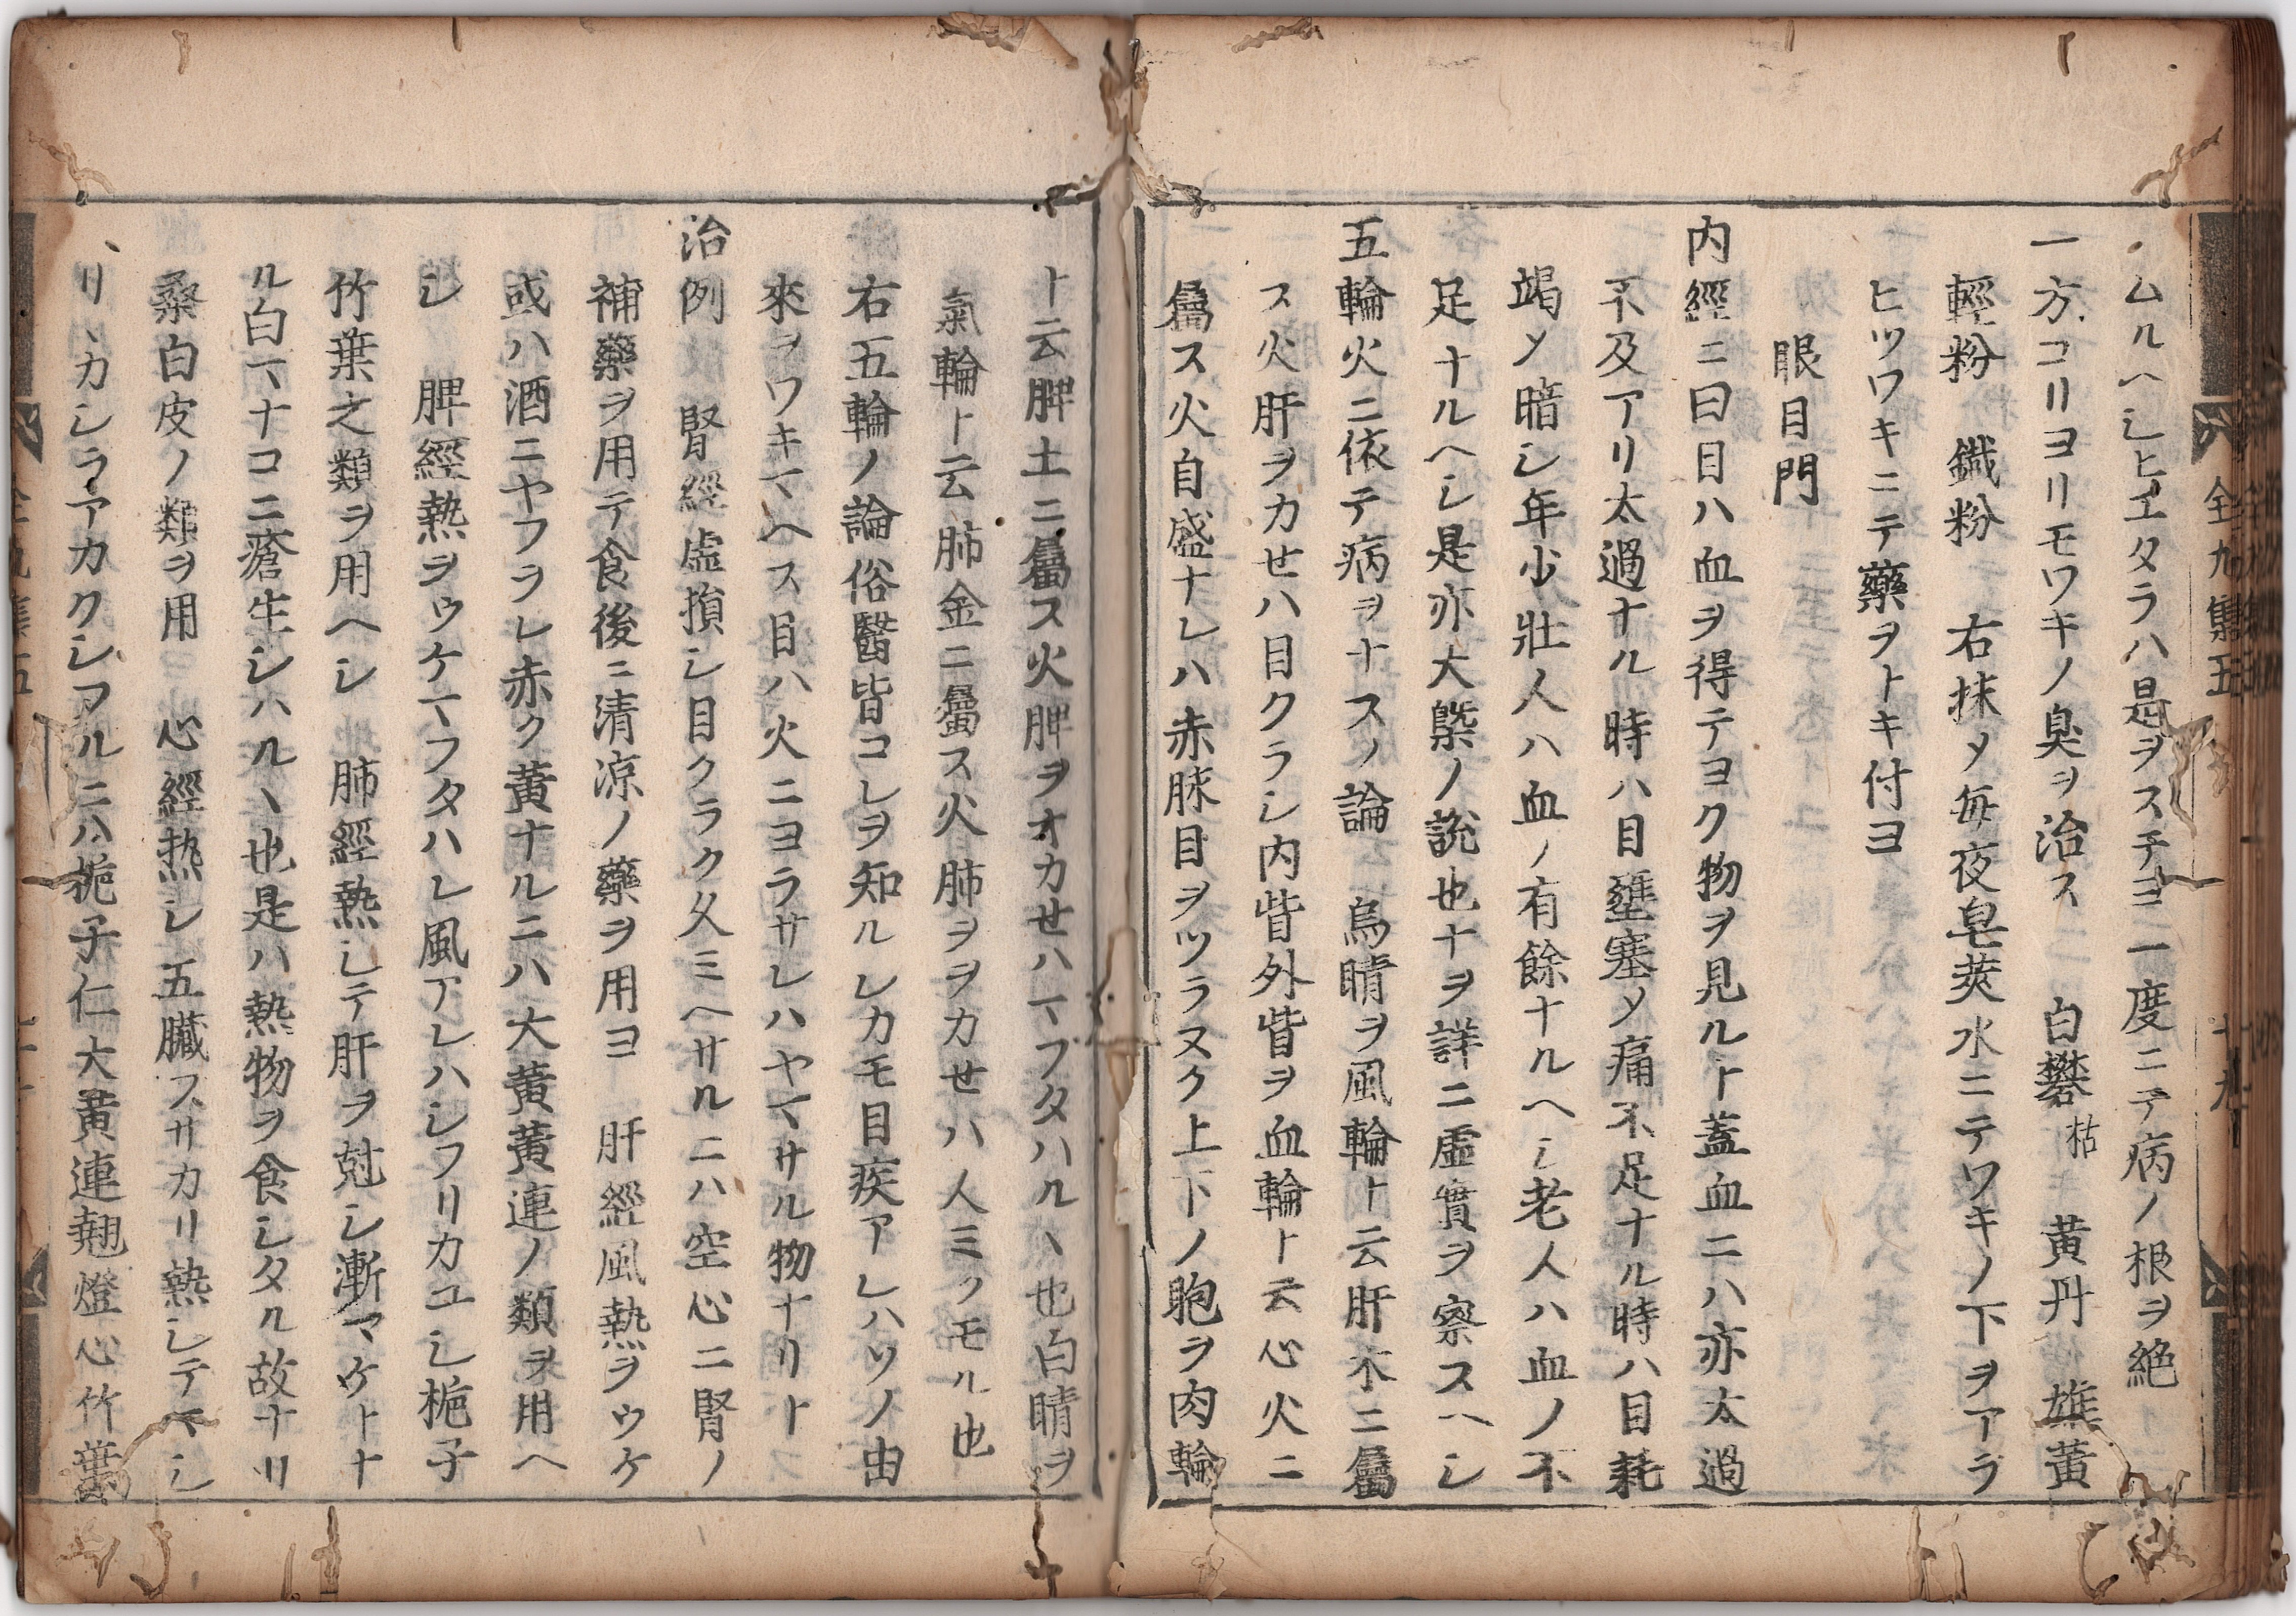 ムルヘシヒエタラハ是ヲステヨ一度ニテ病ノ根ヲ絶
一方コリヨリモワキノ臭ヲ治ス 白礬枯 黃丹 雄黃
輕粉 鐵粉 右抹メ毎夜皂莢水ニテワキノ下ヲアラ
ヒツワキニテ藥ヲトキ付ヨ
眼目門
内經ニ曰目ハ血ヲ得テヨク物ヲ見ルト蓋血ニハ亦太過
不及アリ太過ナル時ハ目壅塞メ痛不足ナル時ハ目耗
竭メ暗シ年少壯人ハ血ノ有餘ナルヘシ老人ハ血ノ不
足ナルヘシ是亦大槩ノ說也ナヲ詳ニ虛實ヲ察スヘシ
五輪火ニ依テ病ヲナスノ論 烏睛ヲ風輪ト云肝木ニ屬
ス火肝ヲカセハ目クラシ内眥外眥ヲ血輪ト云心火ニ
屬ス火自盛ナレハ赤脉目ヲツラヌク上下ノ胞ヲ肉輪
ト云脾土ニ屬ス火脾ヲオカセハマフタハル丶也白睛ヲ
氣輪ト云肺金ニ屬ス火肺ヲヲカセハ人ミクモル也
右五輪ノ論俗醫皆コレヲ知ルレカモ目疾アレハソノ由
來ヲワキマヘス目ハ火ニヨラサレハヤマサル物ナリト
治例 腎經虛損シ目クラク久ミヘサルニハ空心ニ腎ノ
補藥ヲ用テ食後ニ清凉ノ藥ヲ用ヨ 肝經風熱ヲウケ
或ハ酒ニヤフラレ赤ク黃ナルニハ大黃黃連ノ類ヲ用ヘ
シ 脾經熱ヲウケマフタハレ風アレハシフリカユシ梔子
竹葉之類ヲ用ヘシ 肺經熱シテ肝ヲ尅シ漸マケトナ
ル白マナコニ瘡生シハル丶也是ハ熱物ヲ食シタル故ナリ
桑白皮ノ類ヲ用 心經热シ五臟フサカリ熱シテマシ
リ カシラアカクシフルニハ梔子仁大黃連翹燈心竹葉
全九集五 十九